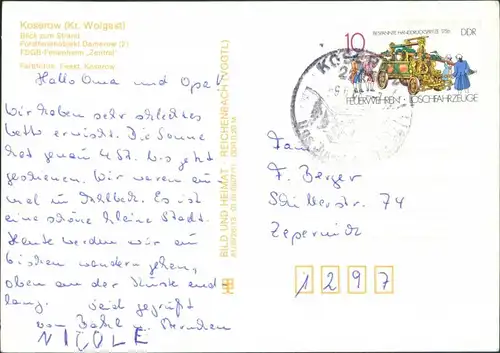 Koserow (Kr. Wolgast)
Blick zum Strand
FDGB-Ferienheim „Zentral“
Hallo Oma und Opa!
Wir haben sehr schlechtes
erwischt. Die Sonne
hat genau 4 St. bis jetzt
geschienen. Wir waren au
mal in Ahlbeck. Es ist
eine schöne kleine Stadt.
Heute werden wir ein
bischen wandern gehen,
oben an der Küste und
lang. Seid gegrüßt
von
NICOLE
BILD UND HEIMAT REICHENBACH (VOGTL)
10
BESPANNTE HANDDRUCKSPRITZE 1756
DDR
FEUERWEHREN - LÖSCHFAHRZEUGE
KOSER
Fam
F. Berger
Schillerstr. 74
Zepernick
1297